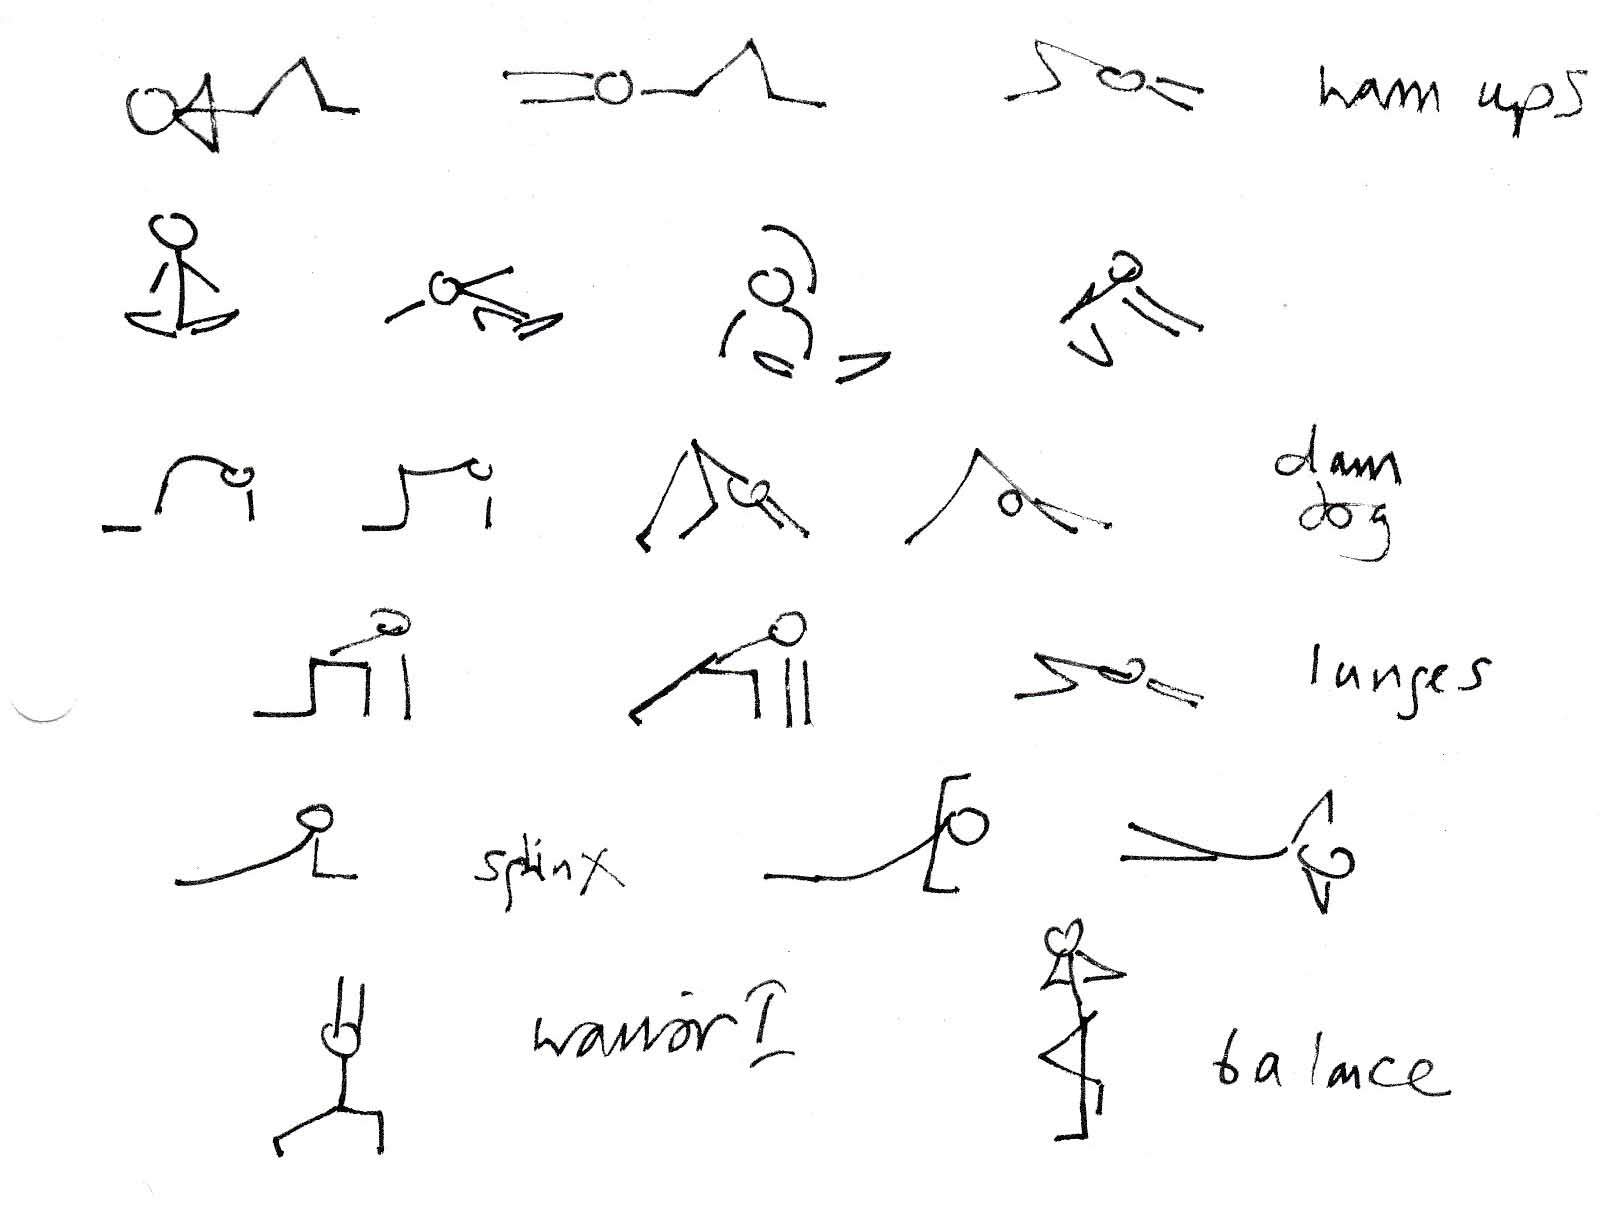 warm ups
down
dog
lunges
sphinx
warrior I
balance